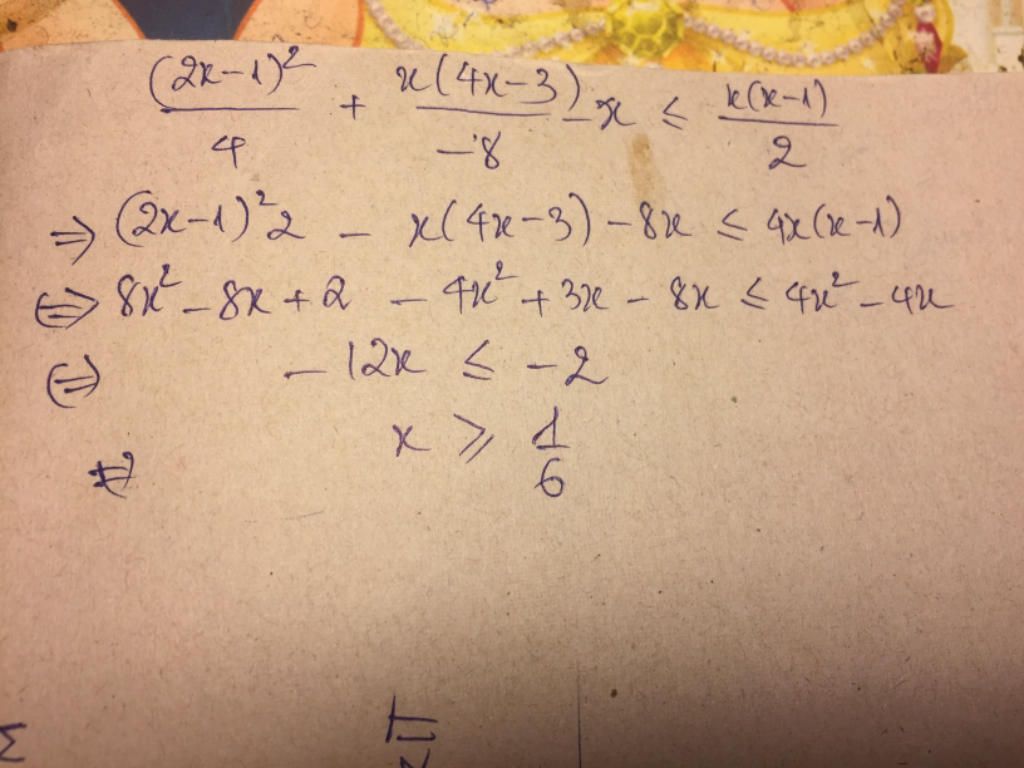 (2x-1)²/4 + x(4x-3)/-8 - x ≤ x(x-1)/2
⇒ (2x-1)²2 - x(4x-3) - 8x ≤ 4x(x-1)
⇔ 8x² - 8x + 2 - 4x² + 3x - 8x ≤ 4x² - 4x
⇔ -12x ≤ -2
⇔ x ≥ 1/6